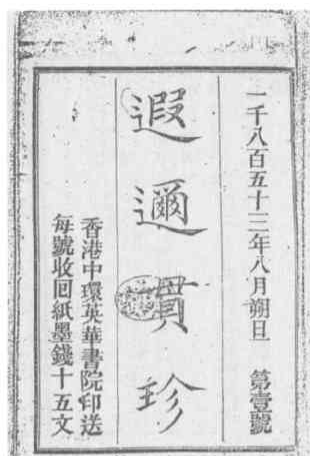 一千八百五十三年八月朔旦　第壹號
遐邇貫珍
香港中環英華書院印送
每號收回紙墨錢十五文